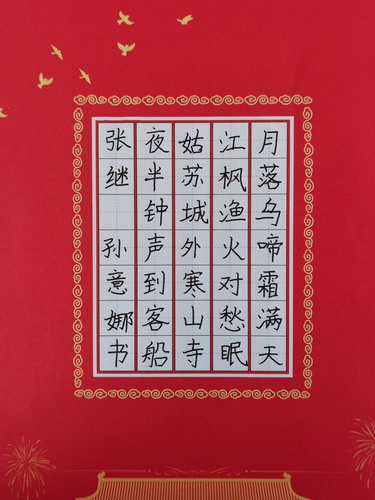 月落乌啼霜满天
江枫渔火对愁眠
姑苏城外寒山寺
夜半钟声到客船
张继 孙意娜书